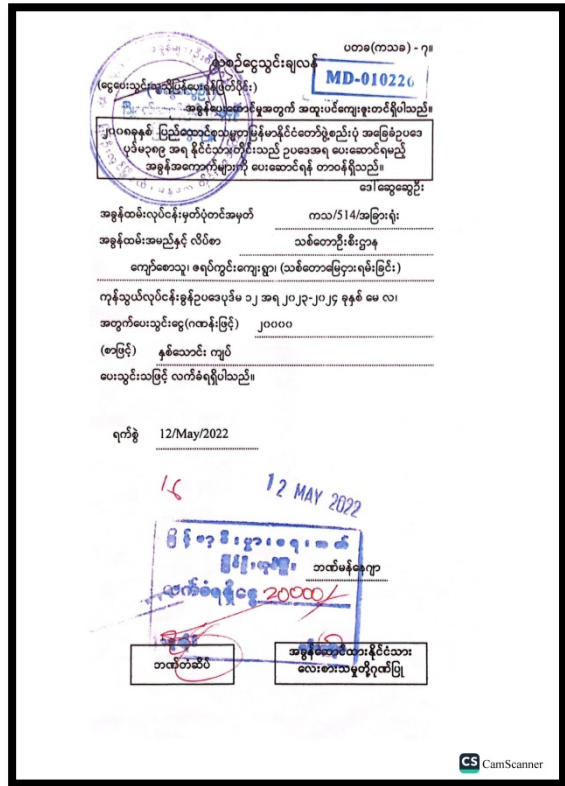 ပတခ(ကသခ) - ၇။
ရာစဉ်ငွေသွင်းချလန်
MD-010226
(ငွေပေးသွင်းသူသို့ပြန်ပေးရန်ဖြတ်ပိုင်း)
အခွန်ပေးဆောင်မှုအတွက် အထူးပင်ကျေးဇူးတင်ရှိပါသည်။
၂၀၀၈ခုနှစ် ပြည်ထောင်စုသမ္မတမြန်မာနိုင်ငံတော်ဖွဲ့စည်းပုံ အခြေခံဥပဒေ
ပုဒ်မ၃၈၉ အရ နိုင်ငံသားတိုင်းသည် ဥပဒေအရ ပေးဆောင်ရမည့်
အခွန်အကောက်များကို ပေးဆောင်ရန် တာဝန်ရှိသည်။
ဒေါ်ဆွေဆွေဦး
အခွန်ထမ်းလုပ်ငန်းမှတ်ပုံတင်အမှတ် ကသ/514/အခြားရုံး
အခွန်ထမ်းအမည်နှင့် လိပ်စာ သစ်တောဦးစီးဌာန
ကျော်စောသူ၊ ဇရပ်ကွင်းကျေးရွာ၊ (သစ်တောမြေငှားရမ်းခြင်း)
ကုန်သွယ်လုပ်ငန်းခွန်ဥပဒေပုဒ်မ ၁၂ အရ ၂၀၂၃-၂၀၂၄ ခုနှစ် မေ လ၊
အတွက်ပေးသွင်းငွေ(ဂဏန်းဖြင့်) ၂၀၀၀၀
(စာဖြင့်) နှစ်သောင်း ကျပ်
ပေးသွင်းသဖြင့် လက်ခံရရှိပါသည်။
ရက်စွဲ 12/May/2022
12 MAY 2022
မြန်မာ့စီးပွားရေးဘဏ်
ဘဏ်မန်နေဂျာ
လက်ခံရရှိငွေ 20000/
ဘဏ်တံဆိပ်
အခွန်ဆောင်ထားနိုင်ငံသား
လေးစားသမှုတို့ဂုဏ်ပြု
CS CamScanner